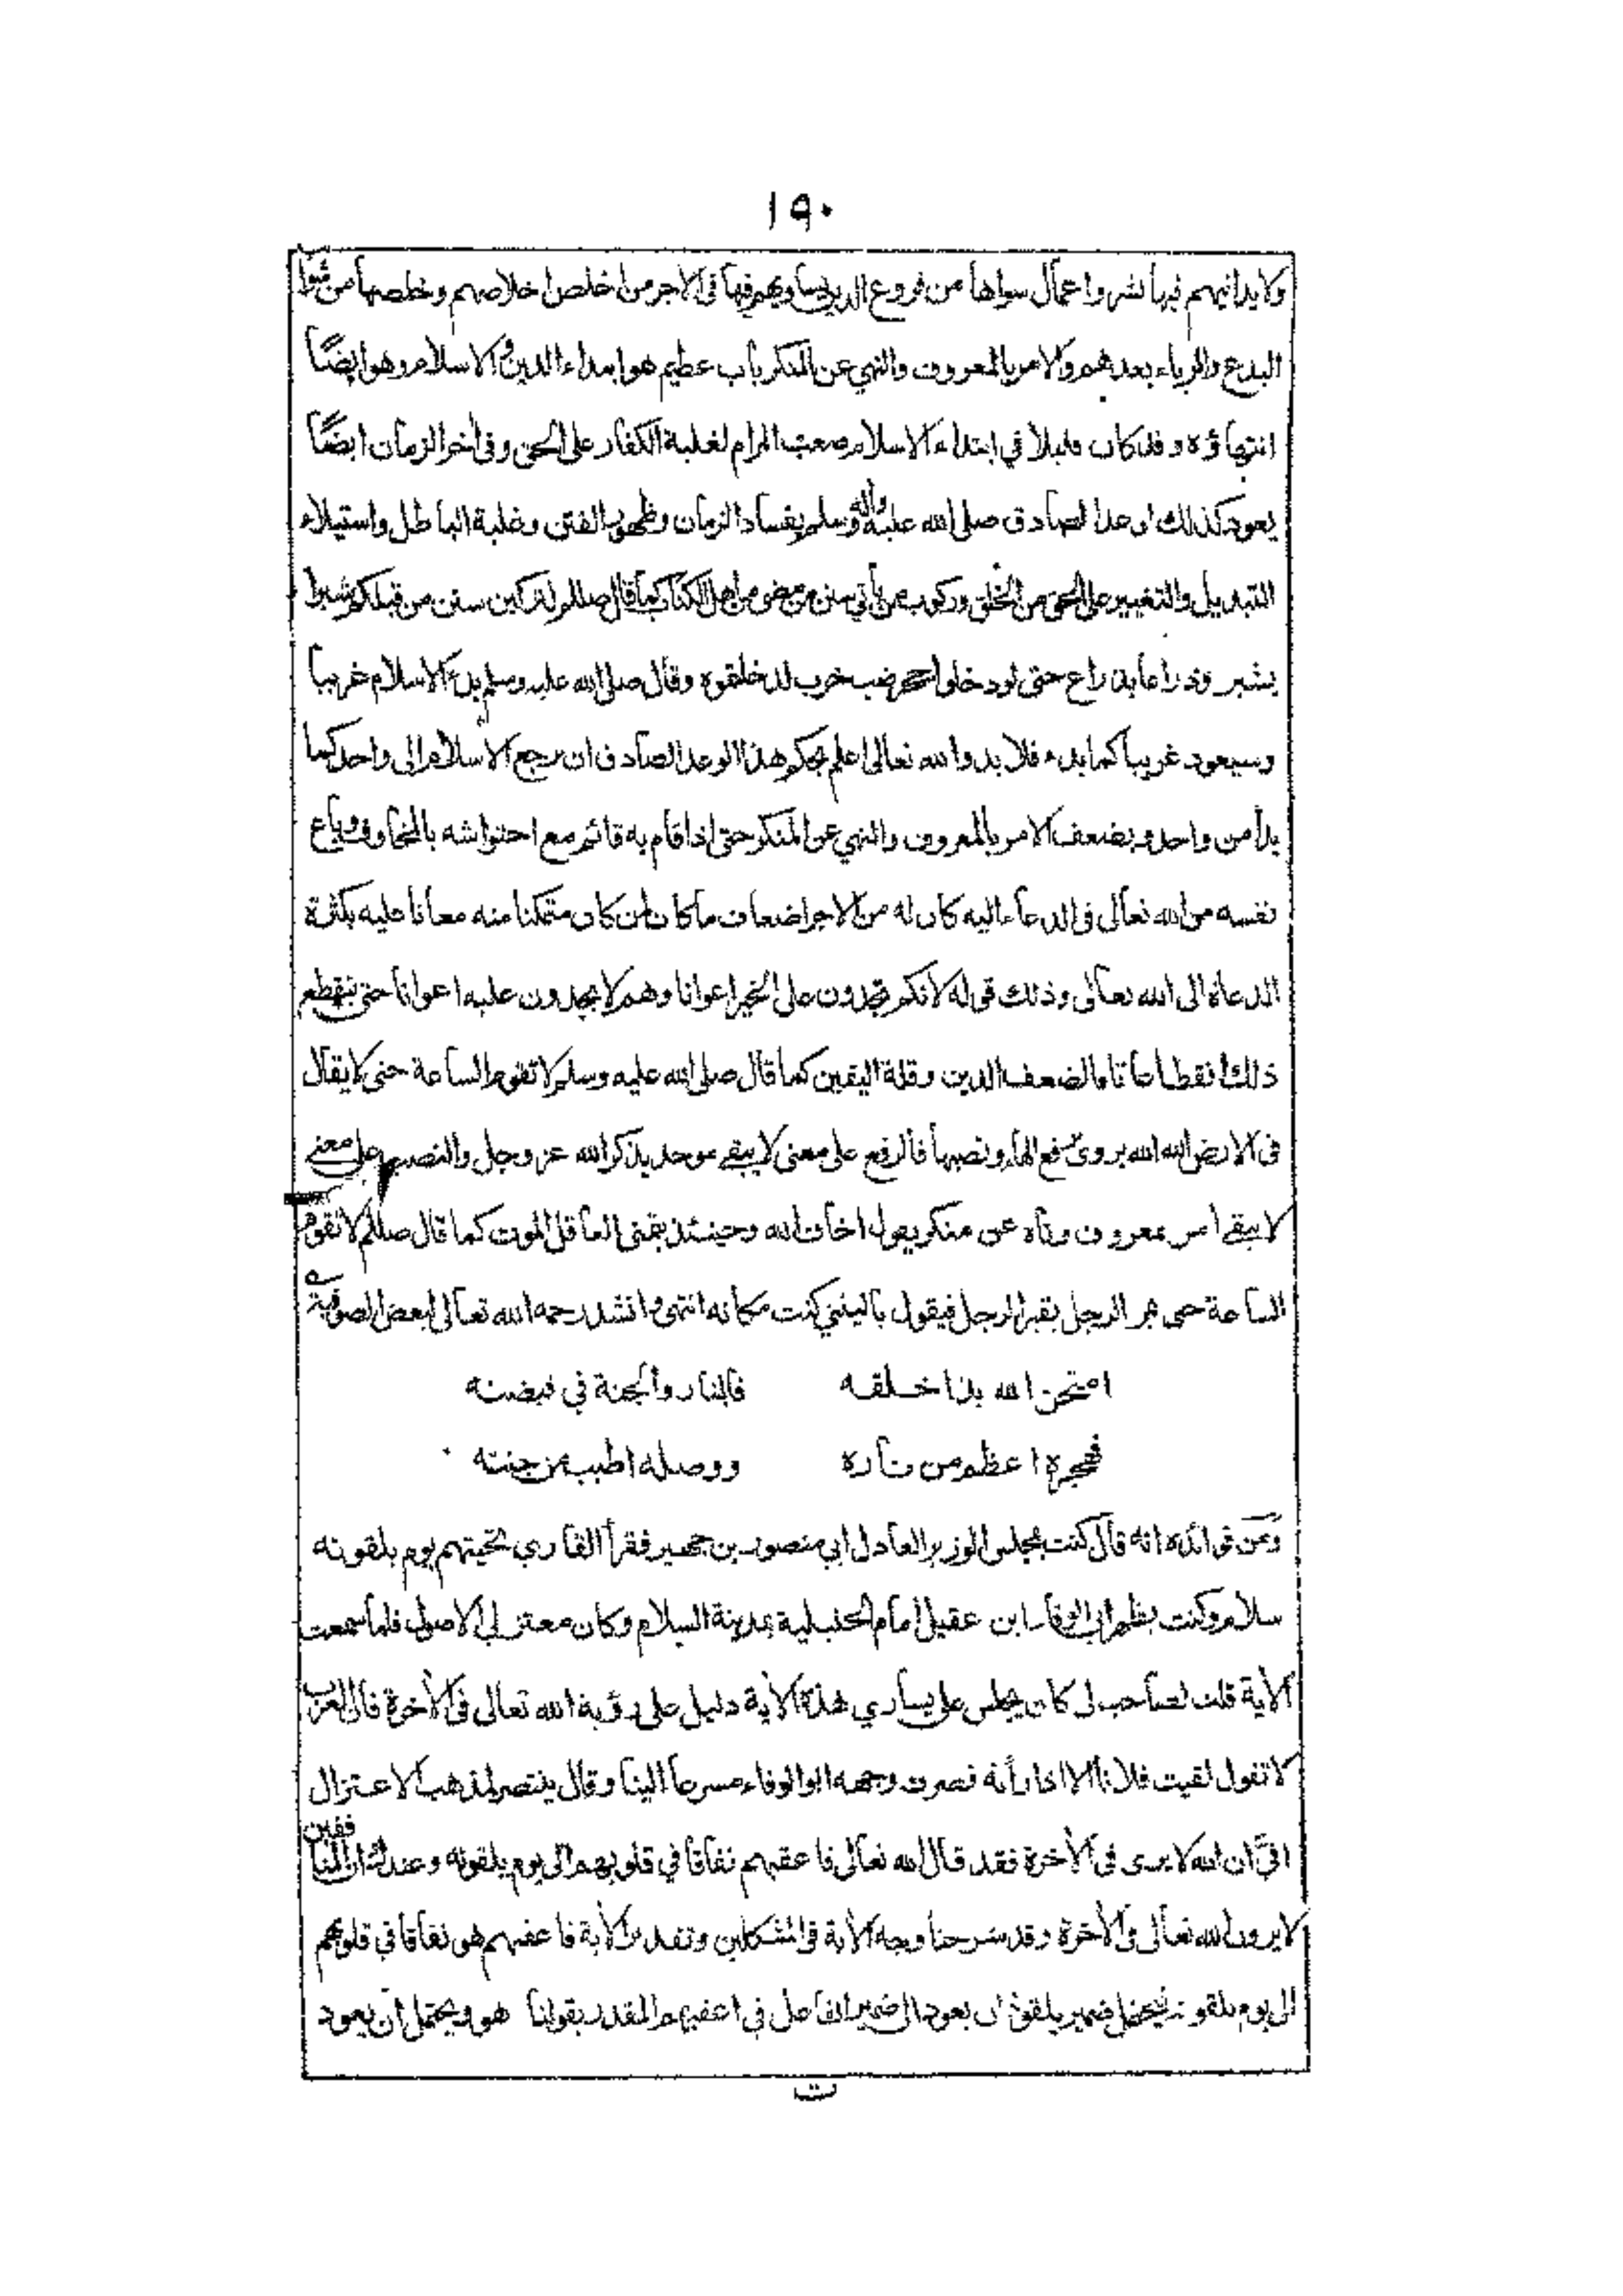 ١٩٠
ولا يدانيهم فيها بشر واعمال سواها من فروع الدين يساويهم فيها فى الاجر من اخلص اخلاصهم وخلصها من شوائب
البدع والرياء بعدهم والامر بالمعروف والنهي عن المنكر باب عظيم هو ابتداء الدين والاسلام وهو ايضًا
انتهاؤه وقد كان قليلا في ابتداء الاسلام صعب المرام لغلبة الكفار على الحق وفى آخر الزمان ايضًا
يعود كذلك لوعد الصادق صلى الله عليه وآله وسلم بفساد الزمان وظهور الفتن وغلبة الباطل واستيلاء
التبديل والتغيير على الحق من الخلق وركوب من يأتي سنن من مضى من اهل الكتاب كما قال صللم لتركبن سنن من قبلكم شبرا
بشبر وذراعا بذراع حتى لو دخلوا جحر ضب خرب لدخلتموه وقال صلى الله عليه وسلم بدء الاسلام غريبا
وسيعود غريبا كما بدء فلا بد والله تعالى اعلم بحكم هذا الوعد الصادق ان يرجع الاسلام الى واحد كما
بدأ من واحد ويضعف الامر بالمعروف والنهي عن المنكر حتى اذا قام به قائم مع احتواشه بالمخاوف وباع
نفسه من الله تعالى فى الدعاء اليه كان له من الاجر اضعاف ما كان لمن كان متمكنا منه معانا عليه بكثرة
الدعاة الى الله تعالى وذلك قوله لانكم تجدون على الخير اعوانا وهم لا يجدون عليه اعوانا حتى ينقطع
ذلك انقطاعا تاما لضعف الدين وقلة اليقين كما قال صلى الله عليه وسلم لا تقوم الساعة حتى لا يقال
فى الارض الله الله يروى برفع الهاء ونصبها فالرفع على معنى لا يبقى موحد يذكر الله عز وجل والنصب على معنى
لا يبقى امر بمعروف وناه عن منكر يقول اخاف الله وحينئذ يتمنى العاقل الموت كما قال صللم لا تقوم
الساعة حتى يمر الرجل بقبر الرجل فيقول يا ليتني كنت مكانه انتهى وانشد رحمه الله تعالى لبعض الصوفية
امتحن الله بذا خلقه فالنار والجنة في قبضته
فهجره اعظم من ناره ووصله اطيب من جنته
ومن فوائده انه قال كنت بمجلس الوزير العادل ابي منصور بن جهير فقرأ القاري تحيتهم يوم يلقونه
سلام وكنت بظهر ابي الوفاء ابن عقيل امام الحنبلية بمدينة السلام وكان معتزلي الاصول فلما سمعت
الاية قلت لصاحب لى كان يجلس على يساري هذه الاية دليل على رؤية الله تعالى فى الاخرة فان العرب
لا تقول لقيت فلانا الا اذا رأته فصرف وجهه ابو الوفاء مسرعا الينا وقال ينتصر لمذهب الاعتزال
فى ان الله لا يرى فى الاخرة فقد قال الله تعالى فاعقبهم نفاقا في قلوبهم الى يوم يلقونه وعندك ان المنافقين
لا يرون الله تعالى فى الاخرة وقد شرحنا وجه الاية فى المشكلين وتقدير الاية فاعقبهم هو نفاقا في قلوبهم
الى يوم يلقونه فيحتمل ضمير يلقونه ان يعود الى ضمير الفاعل فى اعقبهم المقدر بقولنا هو ويحتمل ان يعود